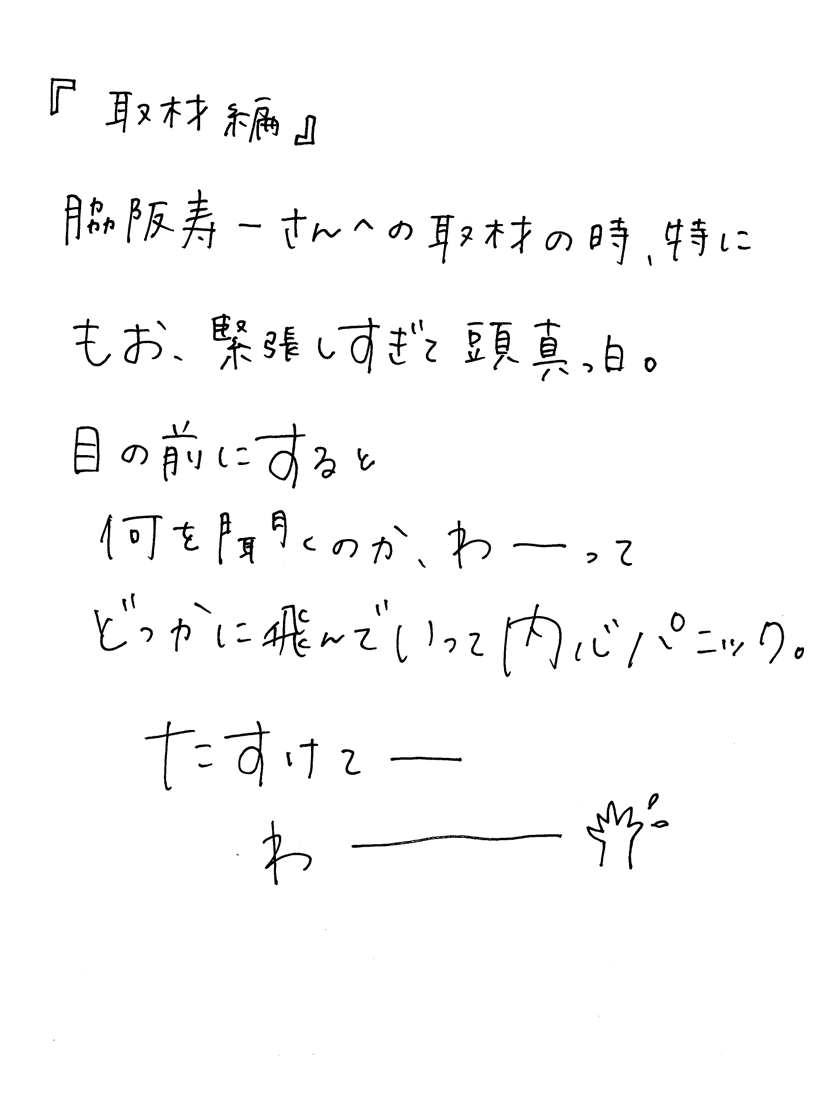 『取材編』
脇阪寿一さんへの取材の時、特に
もお、緊張しすぎて頭真っ白。
目の前にすると
何を聞くのか、わーって
どっかに飛んでいって内心パニック。
たすけてー
わー